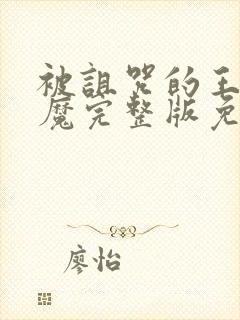 被诅咒的王
魔完整版免
廖怡